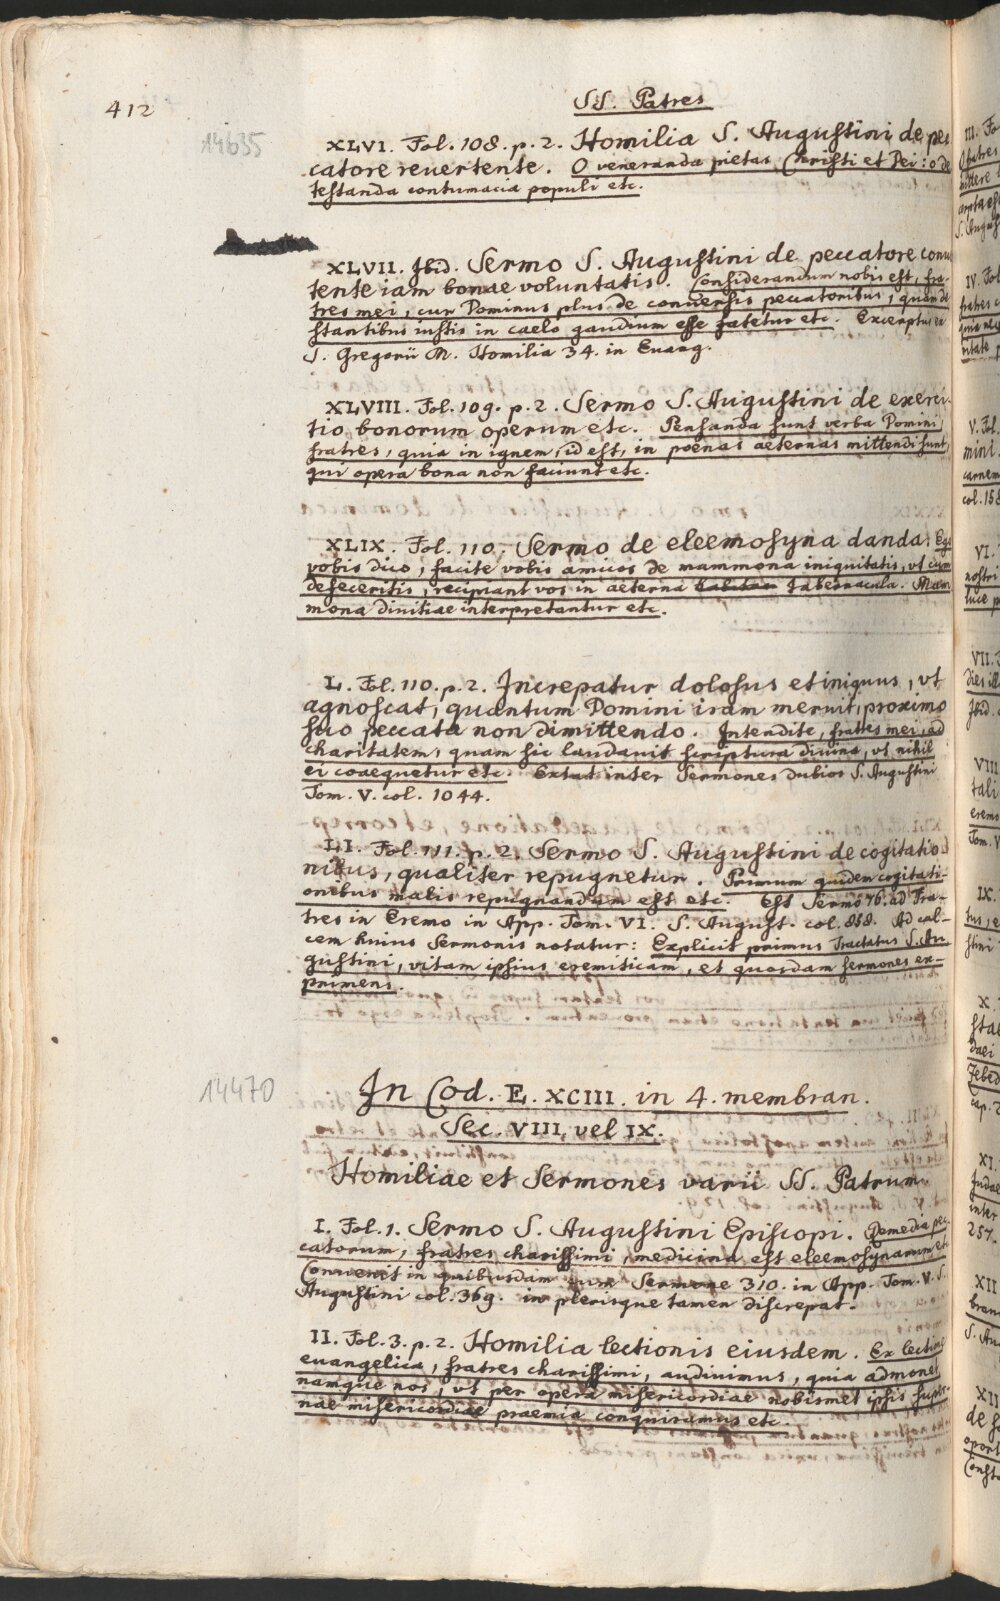 412
SS. Patres
14635
XLVI. Fol. 108. p. 2. Homilia S. Augustini de pec
catore reuertente. O veneranda pietas Christi et Dei: o de
testanda contumacia populi etc.
XLVII. Ibid. Sermo S. Augustini de peccatore conu
tente iam bonae voluntatis. Considerandum nobis est, fra-
tres mei, cur Dominus plus de conuersis peccatoribus, quam de
stantibus iustis in caelo gaudium esse fatetur etc. Excerptus ex
S. Gregorii M. Homilia 34. in Euang.
XLVIII. Fol. 109. p. 2. Sermo S. Augustini de exerci-
tio bonorum operum etc. Pensanda sunt verba Domini
fratres, quia in ignem, id est, in poenas aeternas mittendi sunt,
qui opera bona non faciunt etc.
XLIX. Fol. 110. Sermo de eleemosyna danda. Ego
vobis dico, facite vobis amicos de mammona iniquitatis, vt cum
defeceritis, recipiant vos in aeterna tabernacula. Mam
mona diuitiae interpretantur etc.
L. Fol. 110. p. 2. Increpatur dolosus et iniquus, vt
agnoscat, quantum Domini iram meruit, proximo
suo peccata non dimittendo. Intendite, fratres mei, ad
charitatem, quam sic laudauit scriptura diuina, vt nihil
ei coaequetur etc. Extat inter Sermones dubios S. Augustini
Tom. V. col. 1044.
LI. Fol. 111. p. 2. Sermo S. Augustini de cogitatio
nibus, qualiter repugnetur. Primum quidem cogitati-
onibus malis repugnandum est etc. Est Sermo 76. ad Fra-
tres in Eremo in App. Tom. VI. S. August. col. 858. Ad cal-
cem huius Sermonis notatur: Explicit primus Tractatus S. Au
gustini, vitam ipsius eremiticam, et quosdam sermones ex-
primens.
14470
In Cod. E. XCIII. in 4. membran.
Sec. VIII, vel IX.
Homiliae et Sermones varii SS. Patrum
I. Fol. 1. Sermo S. Augustini Episcopi. Remedia pec
catorum, fratres charissimi, medicina est eleemosynarum etc
Conuenit in quibusdam cum Sermone 310. in App. Tom. V. S.
Augustini col. 369. in plerisque tamen discrepat.
II. Fol. 3. p. 2. Homilia lectionis eiusdem. Ex lectione
euangelica, fratres charissimi, audiuimus, quia admonet
namque nos, vt per opera misericordiae nobismet ipsis super
nae misericordiae praemia conquiramus etc.